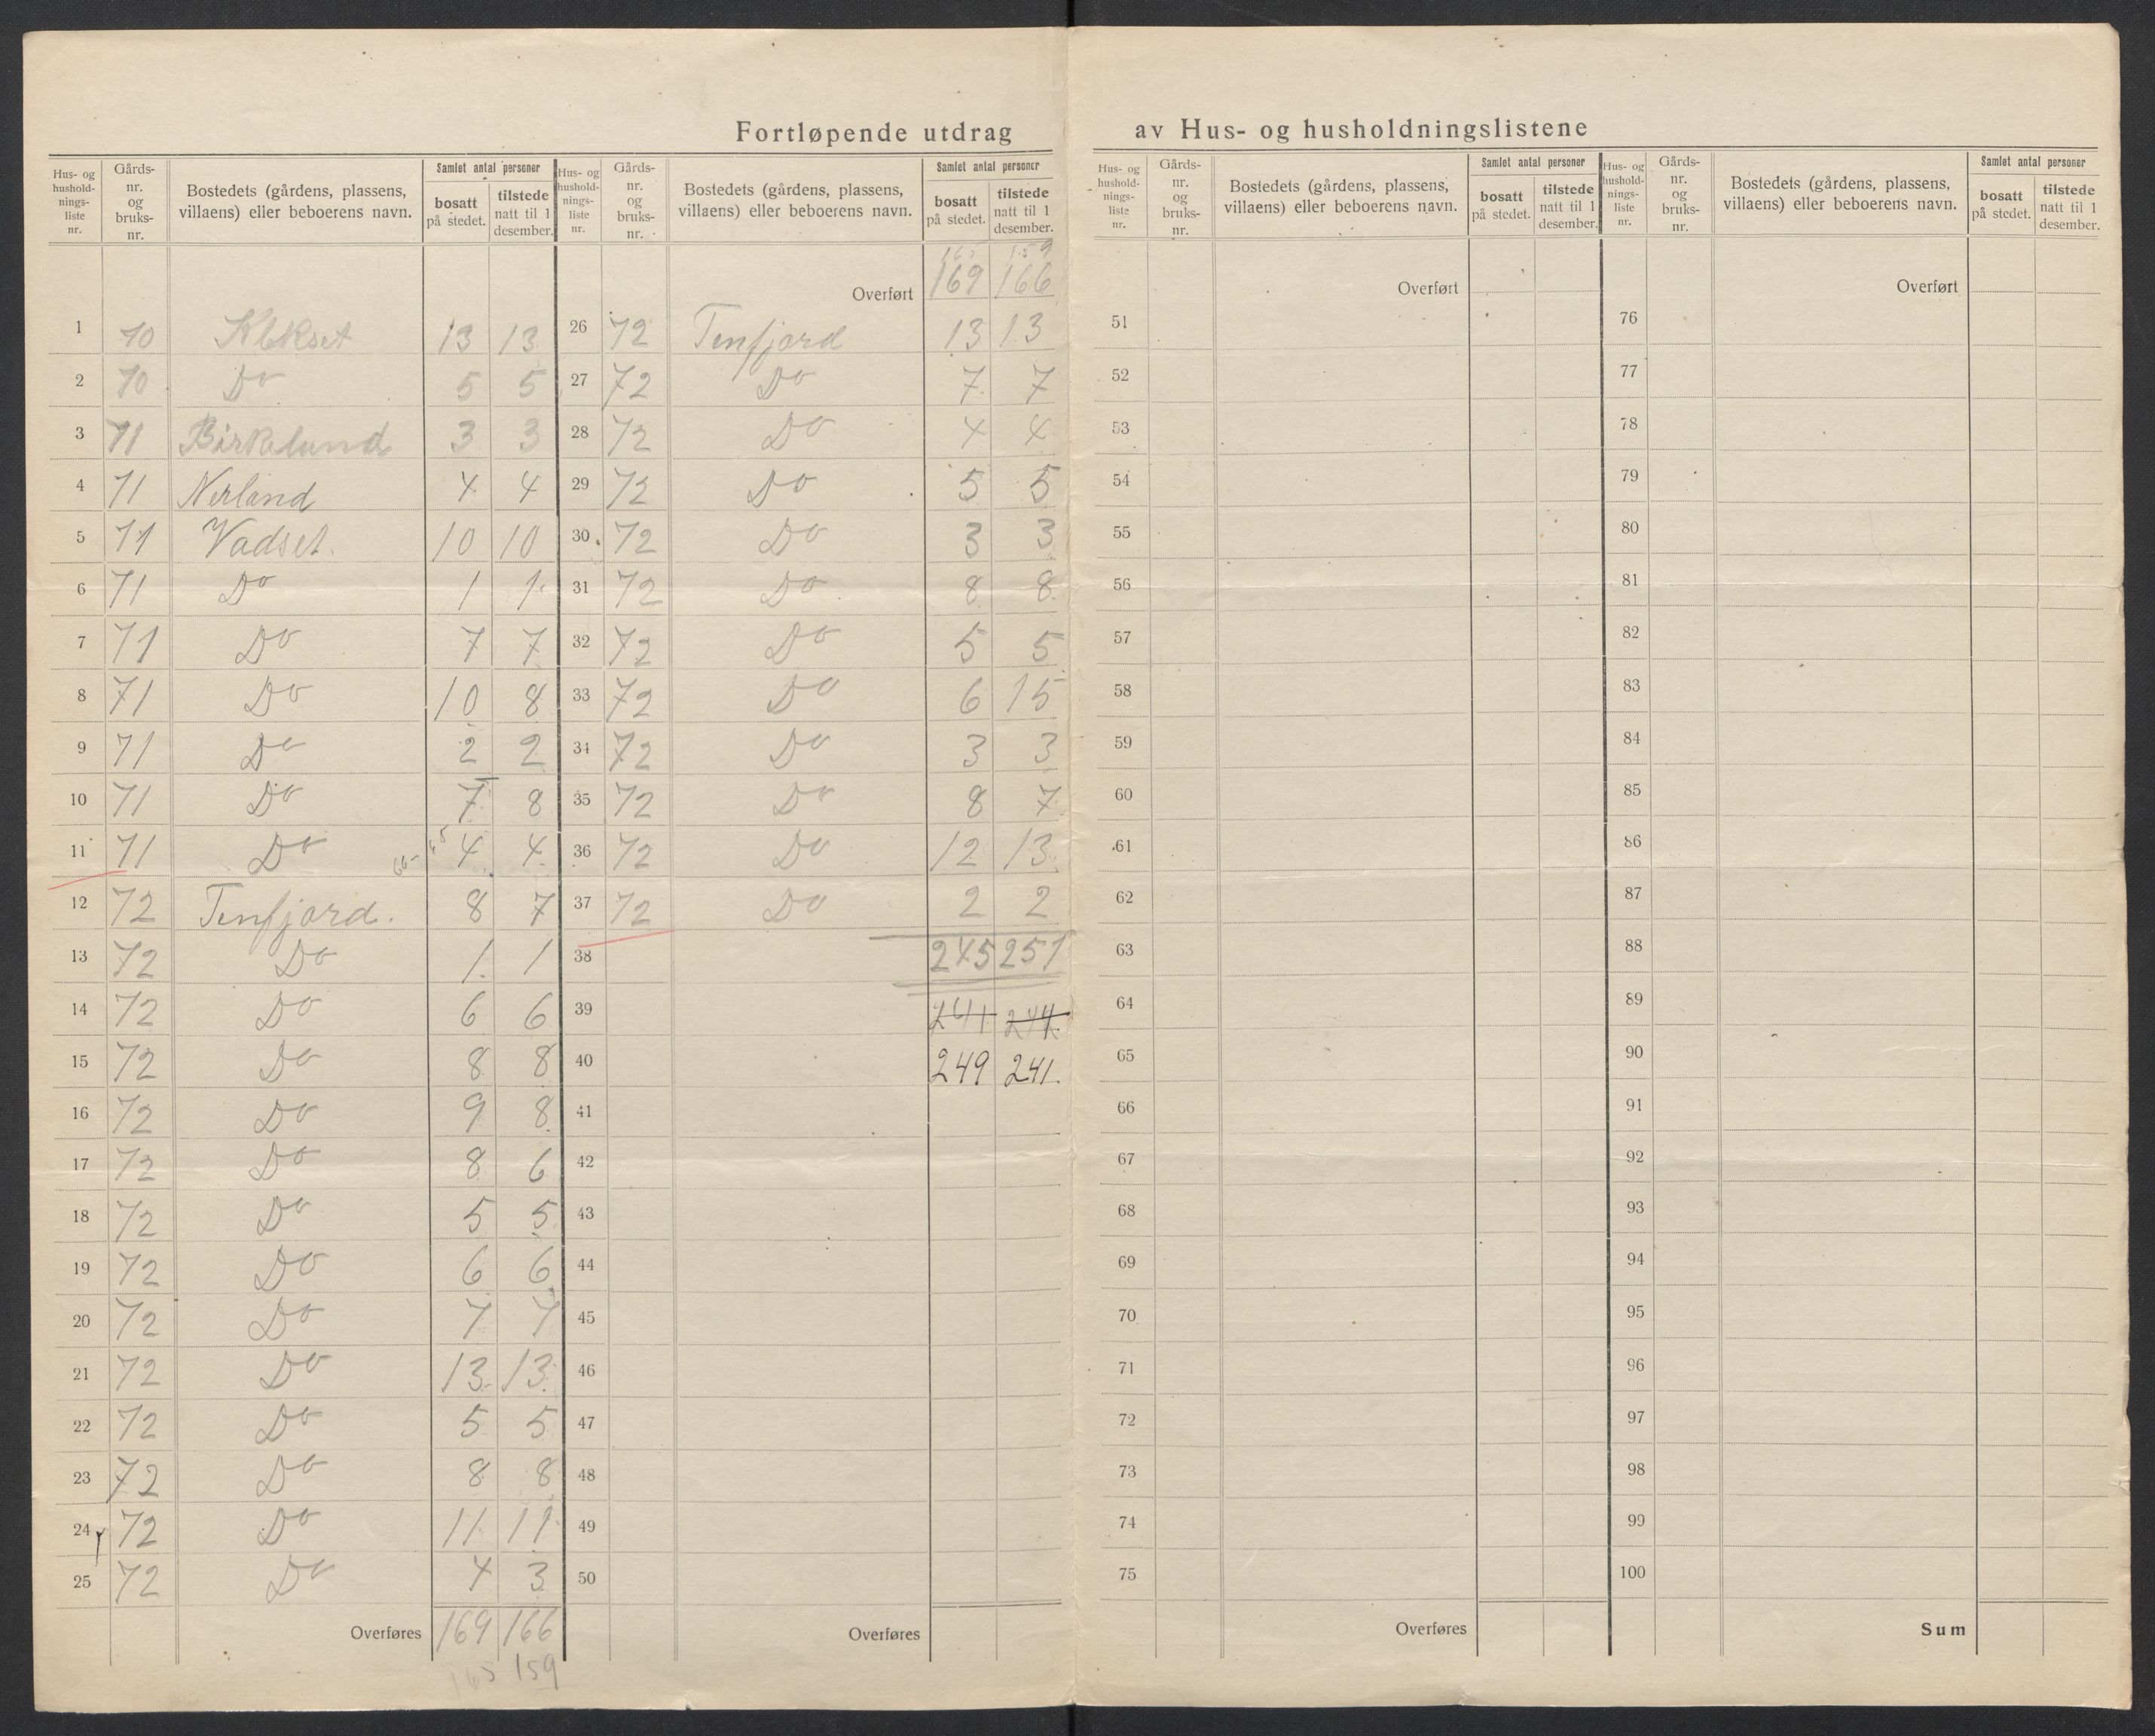 Fortløpende utdrag av Hus- og husholdningslistene
Hus- og hushold- nings- liste nr. | Gårds- nr. og bruks- nr. | Bostedets (gårdens, plassens, villaens) eller beboerens navn. | Samlet antal personer | bosatt på stedet. | tilstede natt til 1 desember.
1 70 13 13
2 70 Do 5 5
3 71 Birkelund 3 3
4 71 Nerland 4 4
5 71 Vadset. 10 10
6 71 Do 1 1
7 71 Do 7 7
8 71 Do 10 8
9 71 Do 2 2
10 71 Do 7 8
11 71 Do 4 4
12 72 Tenfjord. 8 7
13 72 Do 1 1
14 72 Do 6 6
15 72 Do 8 8
16 72 Do 9 8
17 72 Do 8 6
18 72 Do 5 5
19 72 Do 6 6
20 72 Do 7 7
21 72 Do 13 13
22 72 Do 5 5
23 72 Do 8 8
24 72 Do 11 11
25 72 Do 4 3
Overføres 169 166
165 159
Hus- og hushold- nings- liste nr. | Gårds- nr. og bruks- nr. | Bostedets (gårdens, plassens, villaens) eller beboerens navn. | Samlet antal personer | bosatt på stedet. | tilstede natt til 1 desember.
159
Overført 169 166
26 72 Tenfjord 13 13
27 72 Do 7 7
28 72 Do 4 4
29 72 Do 5 5
30 72 Do 3 3
31 72 Do 8 8
32 72 Do 5 5
33 72 Do 6 15
34 72 Do 3 3
35 72 Do 8 7
36 72 Do 12 13
37 72 Do 2 2
38 245 251
39 241 244
40 249 241.
41
42
43
44
45
46
47
48
49
50
Overføres
Hus- og hushold- nings- liste nr. | Gårds- nr. og bruks- nr. | Bostedets (gårdens, plassens, villaens) eller beboerens navn. | Samlet antal personer | bosatt på stedet. | tilstede natt til 1 desember.
Overført
51
52
53
54
55
56
57
58
59
60
61
62
63
64
65
66
67
68
69
70
71
72
73
74
75
Overføres
Hus- og hushold- nings- liste nr. | Gårds- nr. og bruks- nr. | Bostedets (gårdens, plassens, villaens) eller beboerens navn. | Samlet antal personer | bosatt på stedet. | tilstede natt til 1 desember.
Overført
76
77
78
79
80
81
82
83
84
85
86
87
88
89
90
91
92
93
94
95
96
97
98
99
100
Sum